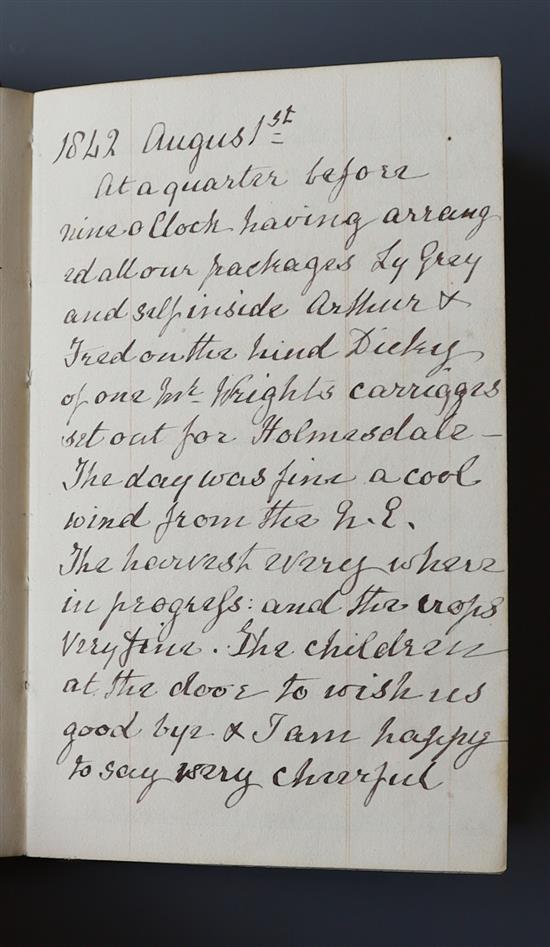 1842 August 1st
At a quarter before
nine o Clock having arrang
ed all our packages Ly Grey
and self inside Arthur &
Fred on the hind Dicky
of one Mr. Wrights carrigges
set out for Holmesdale -
The day was fine a cool
wind from the N.E.
The harvest every where
in progress: and the crops
very fine. The children
at the door to wish us
good bye & I am happy
to say very cheerful